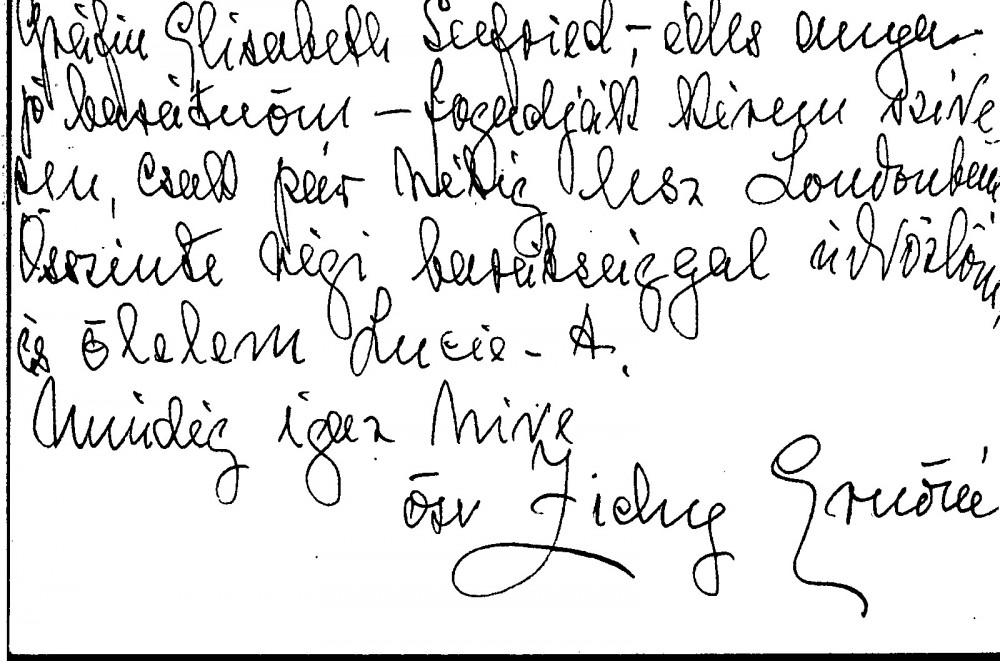 Gräfin Elisabeth Seefried, - édes anyám
jó barátnőm - fogadják kérem szíve
sen, csak pár hétig lesz Londonban
Őszinte régi barátsággal üdvözlöm,
és ölelem Lucie - A.
Mindég igaz híve
özv Zichy Ernőné